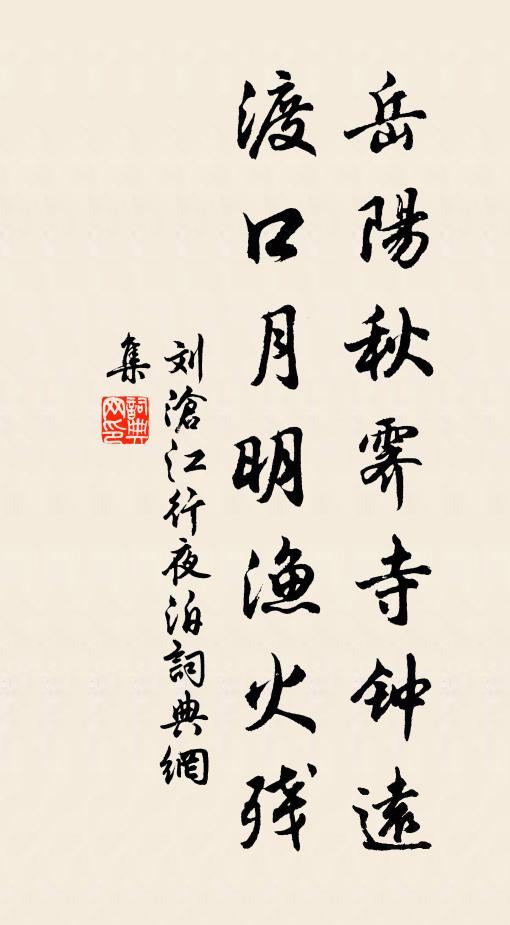 岳陽秋霽寺钟遠
渡口月明渔火残
刘滄江行夜泊詞典網
集
詞典网印